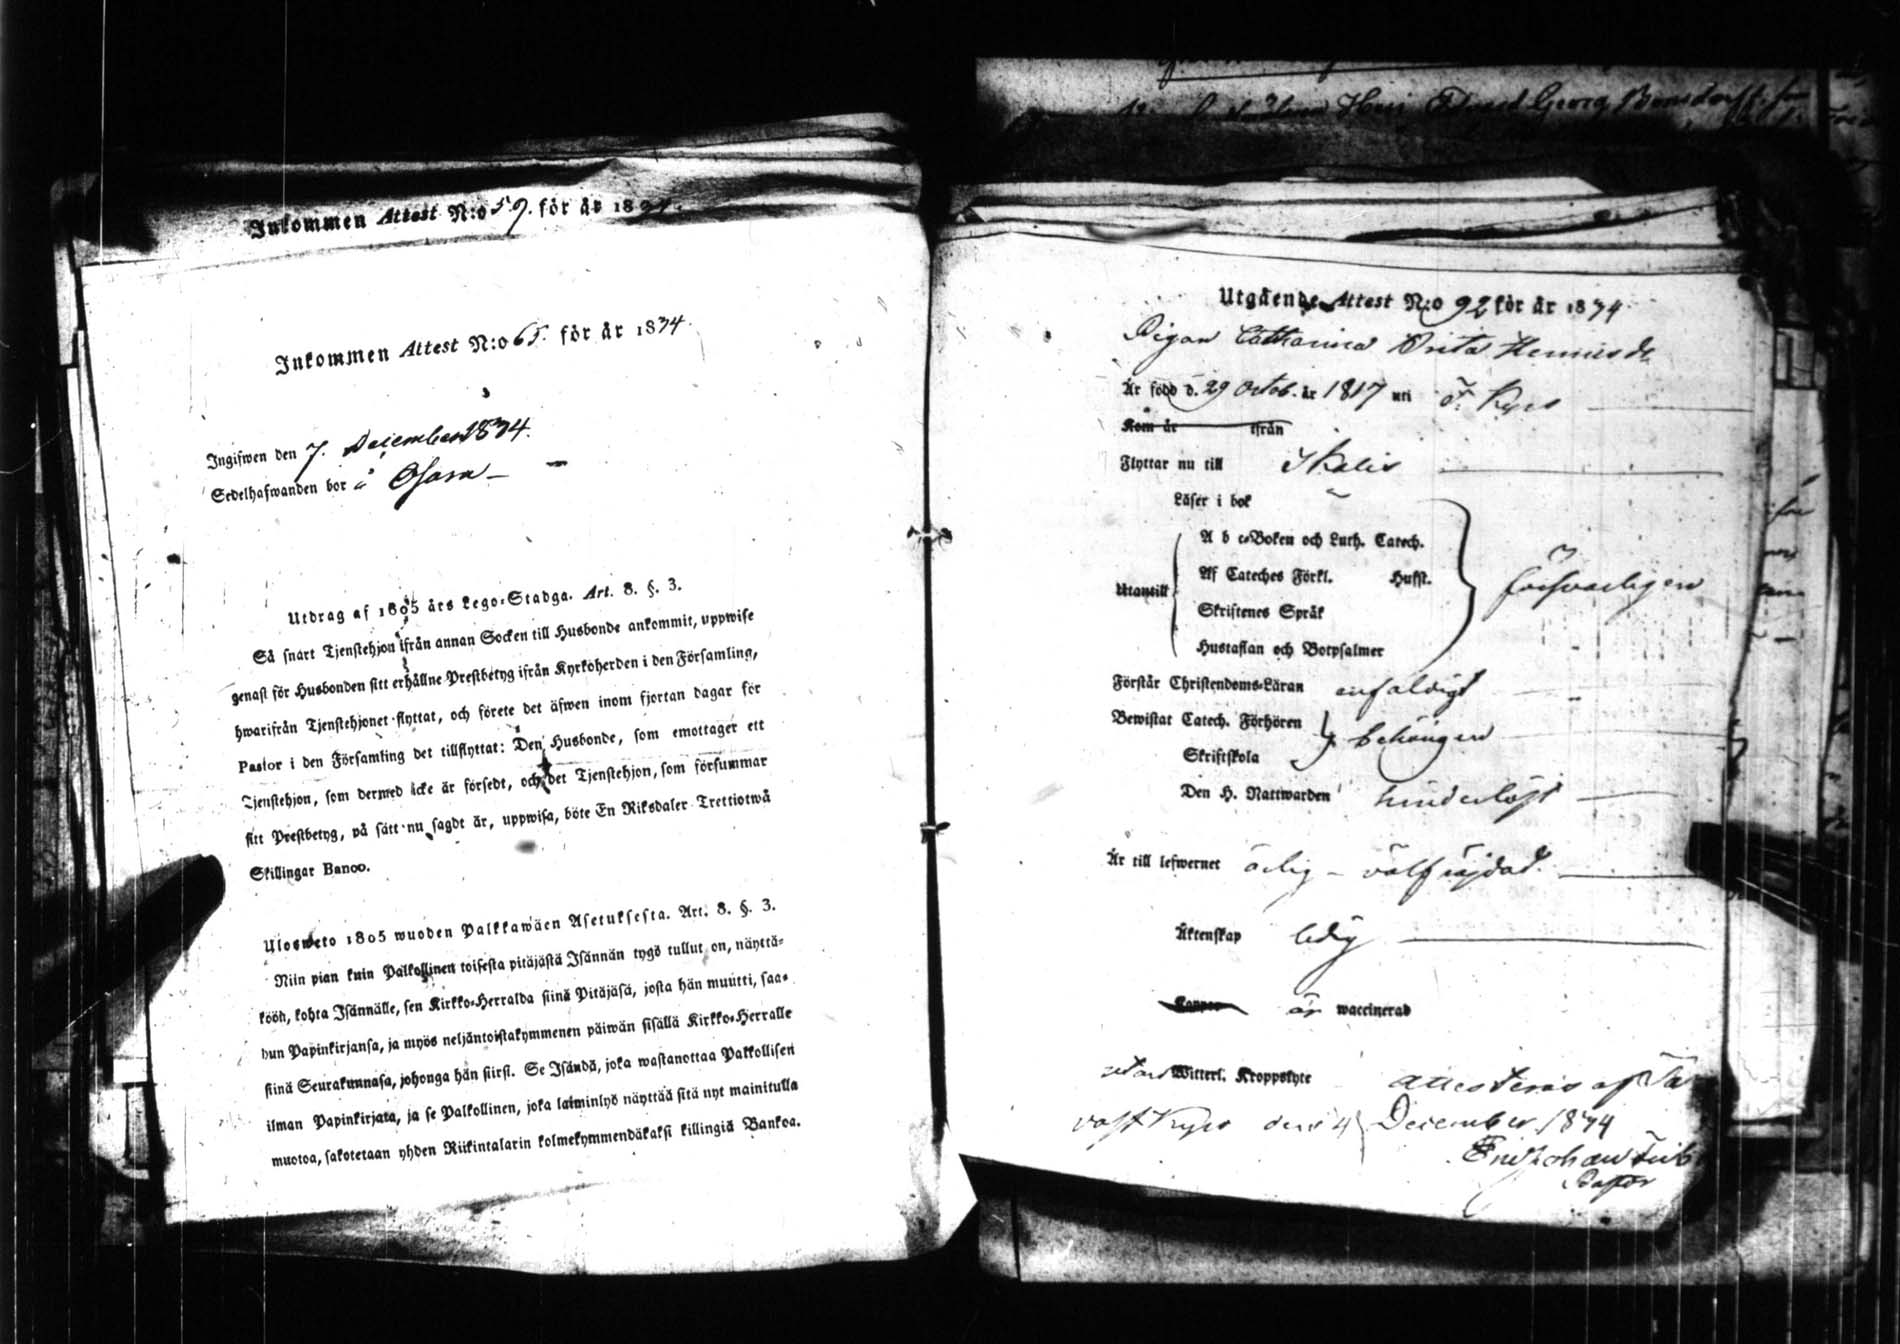 Inkommen Attest N:o 59. för år 18
Inkommen Attest N:o 65. för år 1834.
Ingifwen den 7. December 1834.
Sedelhafwanden bor å Osara
Utdrag af 1805 års Lego-Stadga. Art. 8. §. 3.
Så snart Tjenstehjon ifrån annan Socken till Husbonde ankommit, uppwise
genast för Husbonden sitt erhållne Prestbetyg ifrån Kyrkoherden i den Församling,
hwarifrån Tjenstehjonet flyttat, och förete det äfwen inom fjortan dagar för
Pastor i den Församling det tillflyttat: Den Husbonde, som emottager ett
Tjenstehjon, som dermed icke är försedt, och det Tjenstehjon, som försummar
sitt Prestbetyg, på sätt nu sagdt är, uppwisa, böte En Riksdaler Trettiotwå
Skillingar Banco.
Ulosweto 1805 wuoden Palkkawäen Asetuksesta. Art. 8. §. 3.
Niin pian kuin Palkollinen toisesta pitäjästä Isännän tygö tullut on, näyttä-
kööh, kohta Isännälle, sen Kirkko-Herralda siinä Pitäjäsä, josta hän muutti, saa-
dun Papinkirjansa, ja myös neljäntoistakymmenen päiwän sisällä Kirkko-Herralle
siinä Seurakunnasa, johonga hän siirsi. Se Isändä, joka wastanottaa Palkollisen
ilman Papinkirjata, ja se Palkollinen, joka laiminlyö näyttää sitä nyt mainitulla
muotoa, sakotetaan yhden Riikintalarin kolmekymmendäkaksi killingiä Bankoa.
Edvard Georg Bonsdorff
Utgående Attest N:o 92 för år 1834.
Pigan Catharina Brita Hennies dr
Är född d. 29 Octob. år 1817 uti T. Kyro
Kom år ifrån
Flyttar nu till Ikalis
Läser i bok
A b c-Boken och Luth. Catech.
Utantill Af Cateches Förkl. Hufst.
försvarligen
Skriftenes Språk
Hustaflan och Botpsalmer
Förstår Christendoms-Läran enfaldigt
Bewistat Catech. Förhören behörigen
Skriftskola
Den H. Nattwarden hinderlöst
Är till lefwernet ärlig - välfräjdad.
Äktenskap ledig
Koppor är waccinerad
utan Witterl. Kroppslyte attesteras af Ta
vast Kyro den 4 December 1834
Pastor